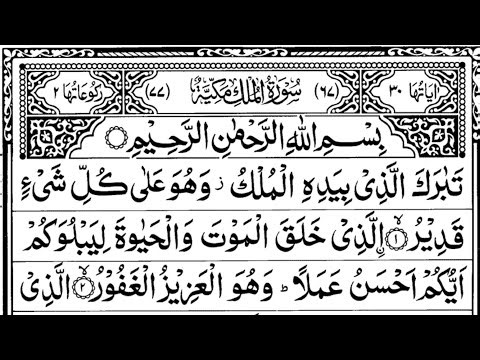 اٰیَاتُهَا ٣٠ (٦٧) سُوْرَةُ الْمُلْكِ مَكِّیَّةٌ (٧٧) رُكُوْعَاتُهَا ٢
بِسْمِ اللّٰهِ الرَّحْمٰنِ الرَّحِیْمِ ۝
تَبٰرَكَ الَّذِیْ بِیَدِهِ الْمُلْكُ ز وَهُوَ عَلٰی كُلِّ شَیْءٍ
قَدِیْرُ ۝١ۙ الَّذِیْ خَلَقَ الْمَوْتَ وَالْحَیٰوةَ لِیَبْلُوَكُمْ
اَیُّكُمْ اَحْسَنُ عَمَلًا ؕ وَهُوَ الْعَزِیْزُ الْغَفُوْرُ ۝٢ۙ الَّذِیْ